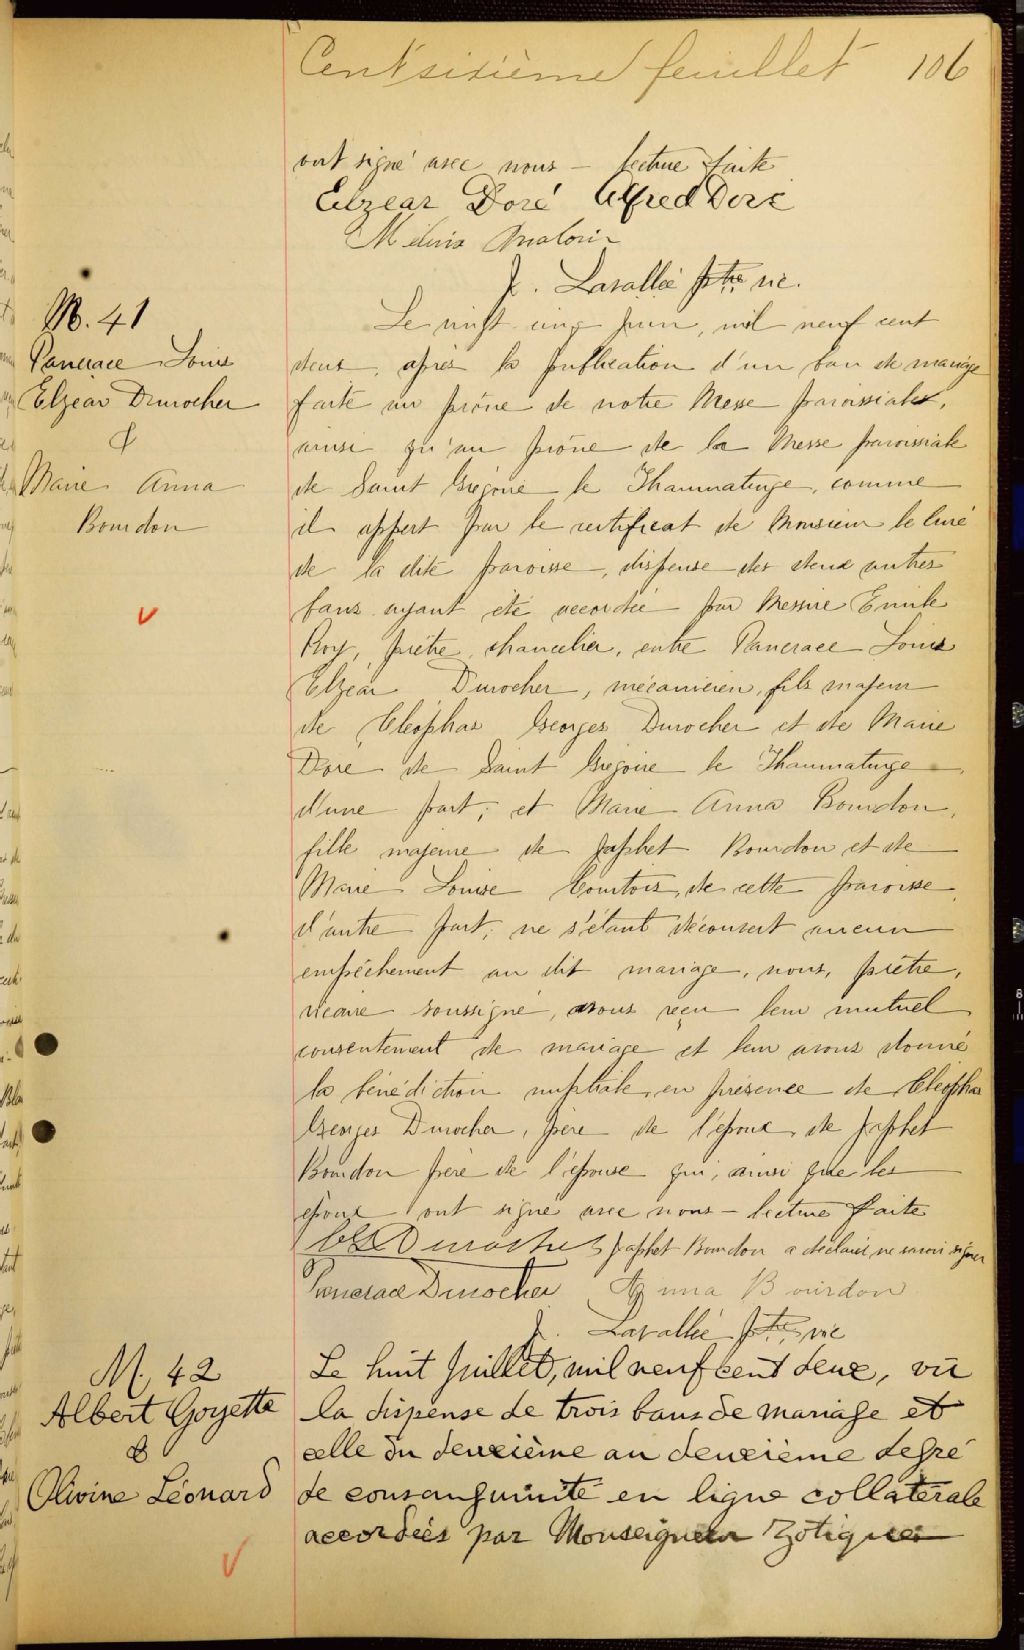 Cent sixième feuillet 106
ont signé avec nous - lecture faite
Elzear Doré Alfred Doré
J. Lavallée ptre vic.
M. 41
Pancrace Louis
Elzéar Durocher
&
Marie Anna
Bourdon
Le vingt cinq juin, mil neuf cent
deux, après la publication d'un ban de mariage
faite au prône de notre Messe paroissiale,
ainsi qu'au prône de la Messe paroissiale
de Saint Grégoire le Thaumaturge, comme
il appert par le certificat de Monsieur le Curé
de la dite paroisse, dispense des deux autres
bans ayant été accordée par Messire Emile
Roy, prêtre, chancelier, entre Pancrace Louis
Elzéar Durocher, mécanicien, fils majeur
de Cléophas Georges Durocher et de Marie
Doré de Saint Grégoire le Thaumaturge,
d'une part; et Marie Anna Bourdon,
fille majeure de Japhet Bourdon et de
Marie Louise Courtois, de cette paroisse,
d'autre part; ne s'étant découvert aucun
empêchement au dit mariage, nous, prêtre,
vicaire soussigné, avons reçu leur mutuel
consentement de mariage et leur avons donné
la bénédiction nuptiale en présence de Cléophas
Georges Durocher, père de l'époux, de Japhet
Bourdon père de l'épouse qui, ainsi que les
époux ont signé avec nous - lecture faite
Durocher Japhet Bourdon a déclaré ne savoir signer
Pancrace Durocher Anna Bourdon
J. Lavallée ptre vic
M. 42
Albert Goyette
&
Olivine Léonard
Le huit Juillet, mil neuf cent deux, vu
la dispense de trois bans de mariage et
celle du deuxième au deuxième degré
de consanguinité en ligne collatérale
accordées par Monseigneur Zotique